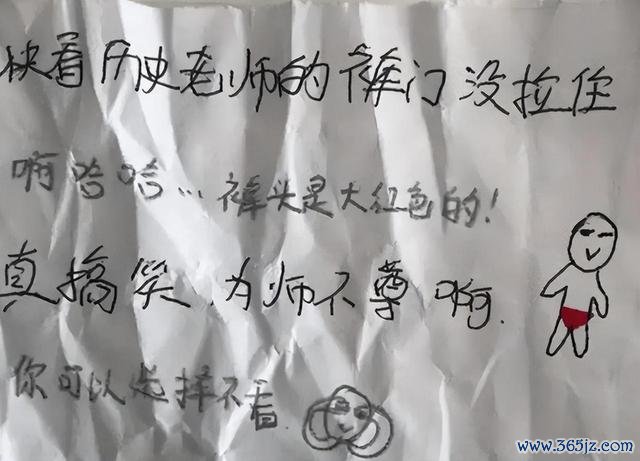 快看历史老师的裤门没拉住
啊哈哈…裤头是大红色的!
真搞笑为师不尊啊.
你可以选择不看.
www.365jz.com